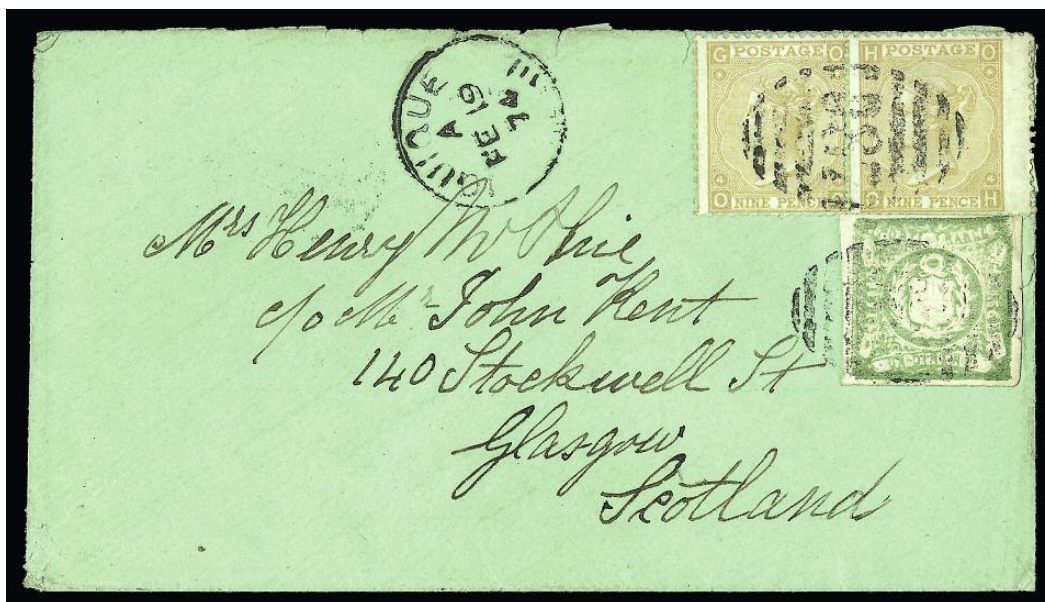 IQUIQUE
A
FE 19
74
G POSTAGE O
O NINE PENCE G
H POSTAGE O
O NINE PENCE H
Mrs Henry
c/o Mr John Kent
140 Stockwell St
Glasgow
Scotland